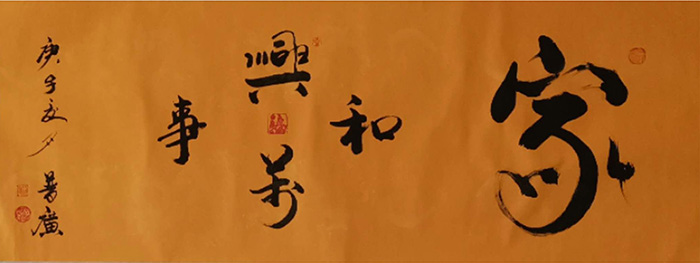 家和萬事興
庚子夏夕
廣